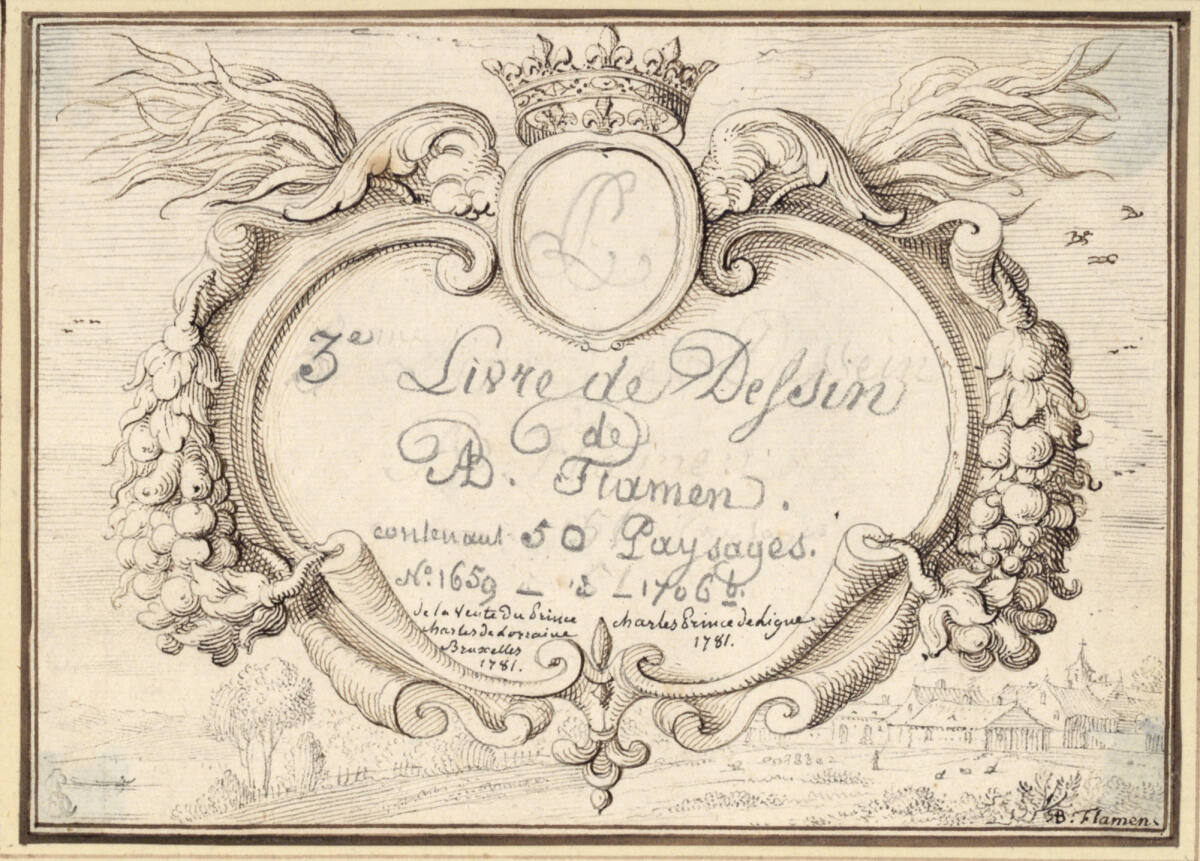 L
3e Livre de Dessin
de
AB. Flamen.
contenant 50 Paysages.
No. 1659 — à — 1706 b.
de la Vente Du Prince
charles de Lorraine
Bruxelles
1781.
charles Prince de Ligne
1781.
AB. Flamen.